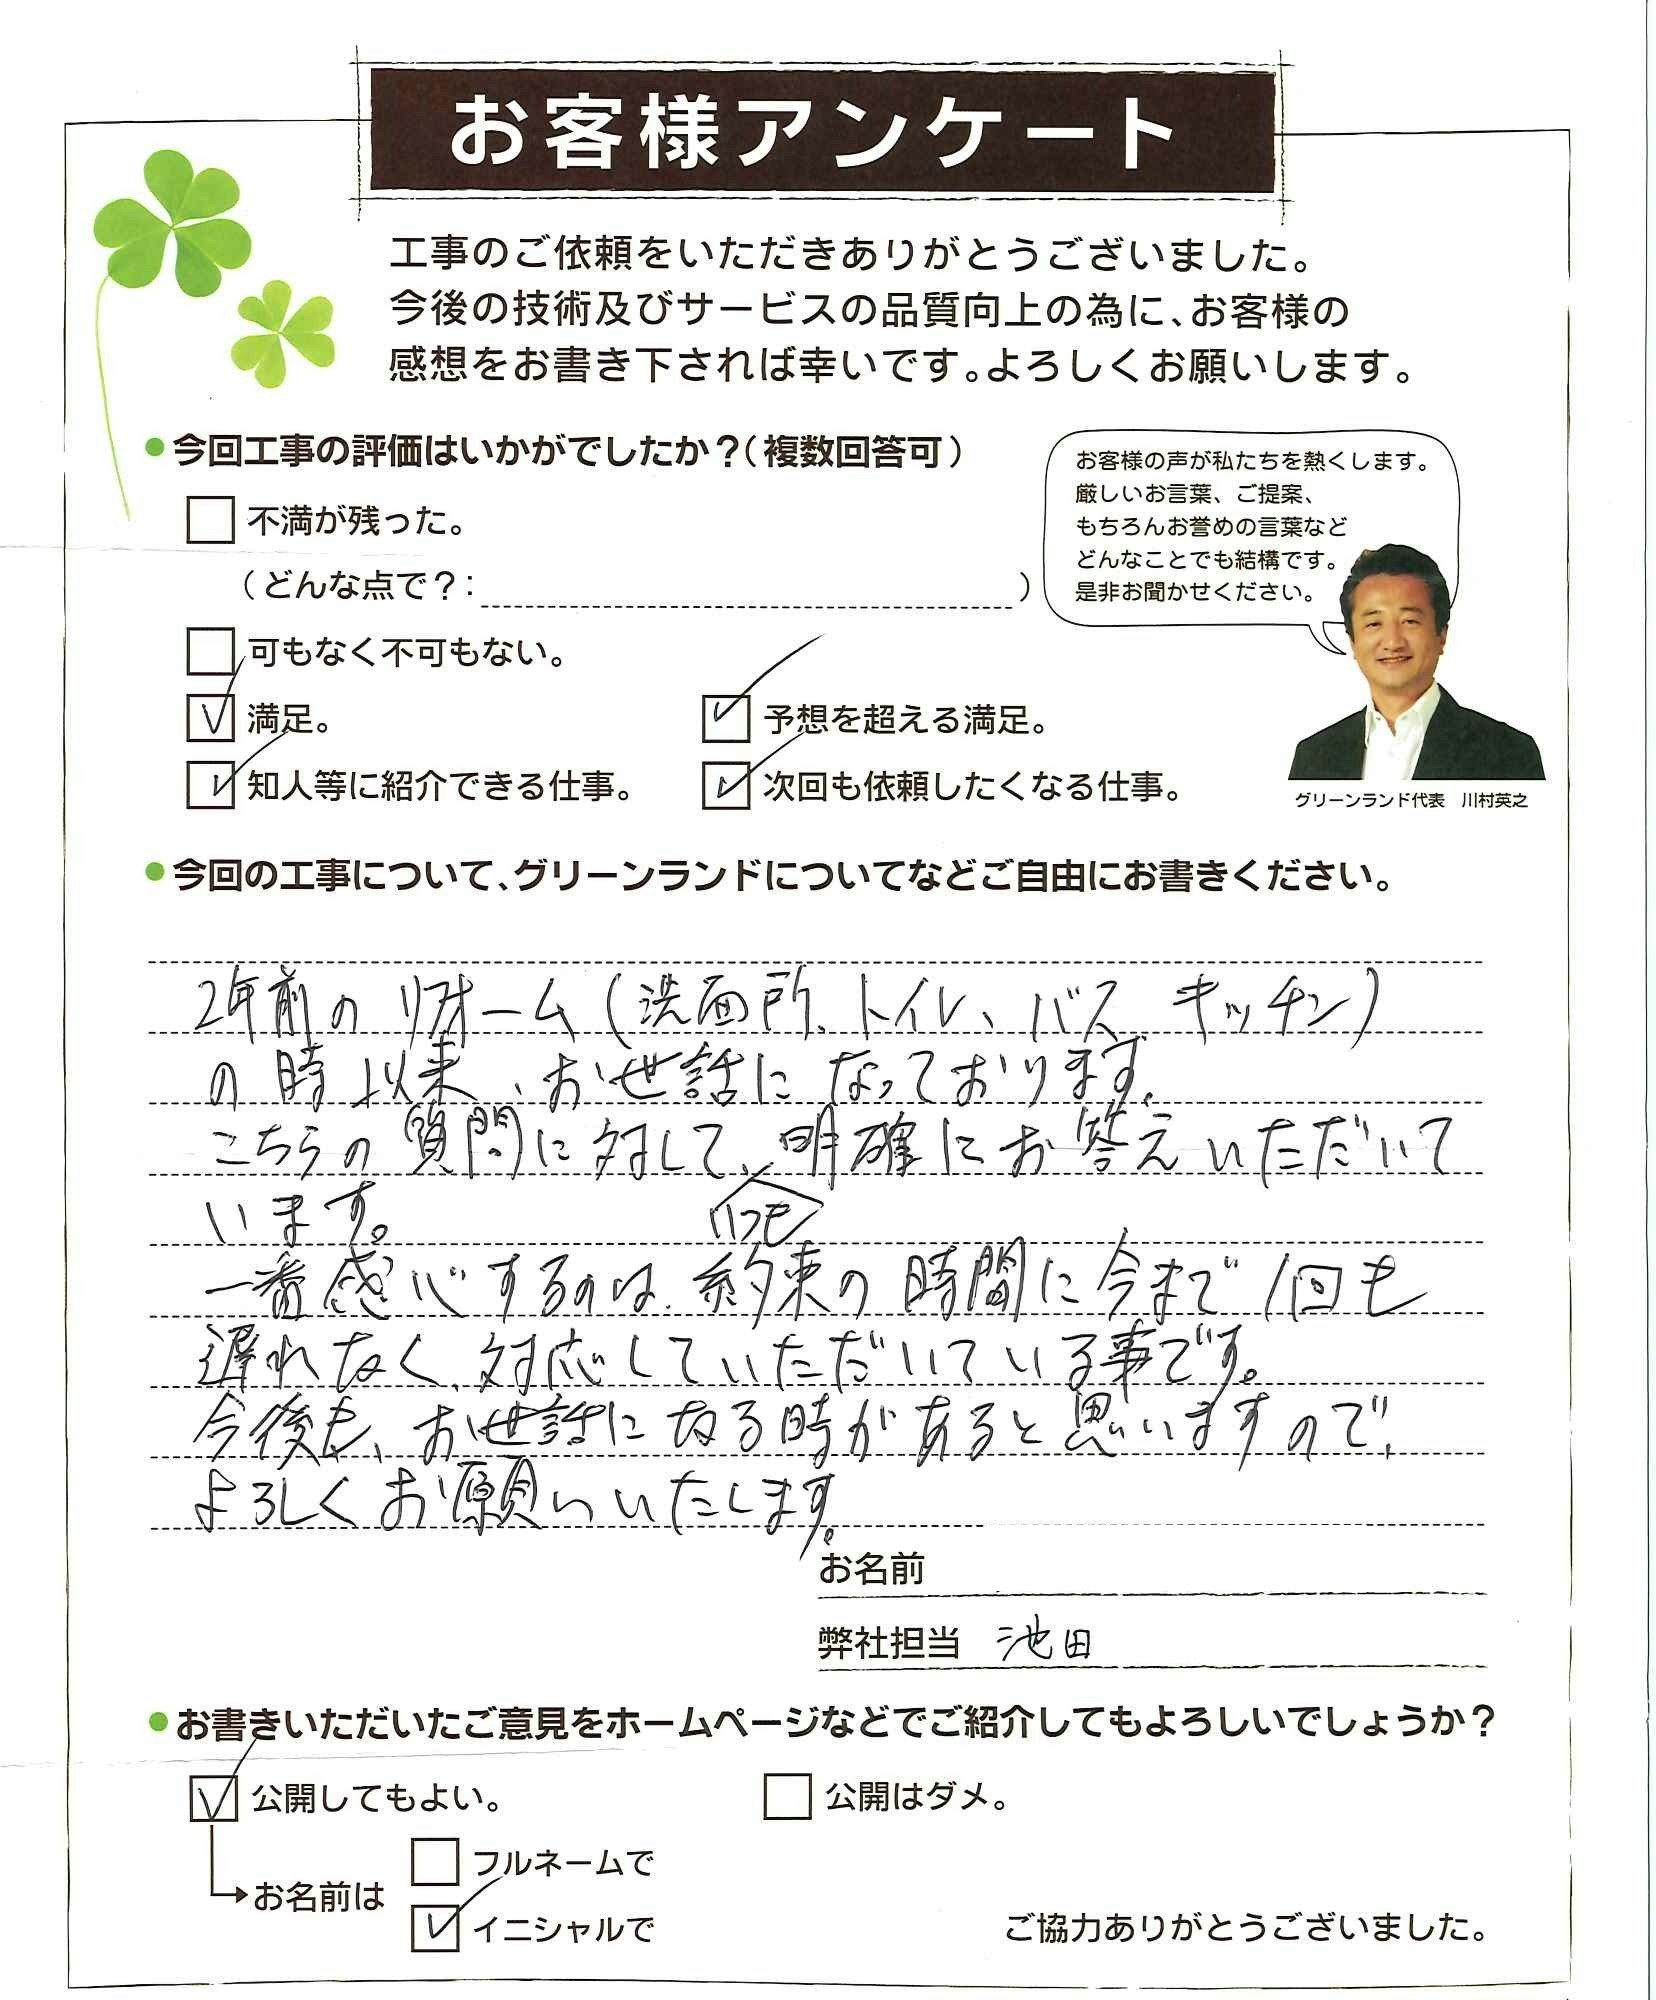 お客様アンケート
工事のご依頼をいただきありがとうございました。
今後の技術及びサービスの品質向上の為に、お客様の
感想をお書き下されば幸いです。よろしくお願いします。
●今回工事の評価はいかがでしたか？(複数回答可)
お客様の声が私たちを熱くします。
厳しいお言葉、ご提案、
もちろんお誉めの言葉など
どんなことでも結構です。
是非お聞かせください。
不満が残った。
(どんな点で？: )
可もなく不可もない。
満足。 予想を超える満足。
知人等に紹介できる仕事。 次回も依頼したくなる仕事。
グリーンランド代表 川村英之
●今回の工事について、グリーンランドについてなどご自由にお書きください。
2年前のリフォーム(洗面所、トイレ、バス キッチン)
の時以来、お世話になっております。
こちらの質問に対して、明確にお答えいただいて
います。
いつも
一番感心するのは、約束の時間に今まで1回も
遅れなく、対応していただいている事です。
今後も、お世話になる時があると思いますので、
よろしくお願いいたします。
お名前
弊社担当 池田
●お書きいただいたご意見をホームページなどでご紹介してもよろしいでしょうか？
公開してもよい。 公開はダメ。
フルネームで
お名前は
イニシャルで
ご協力ありがとうございました。